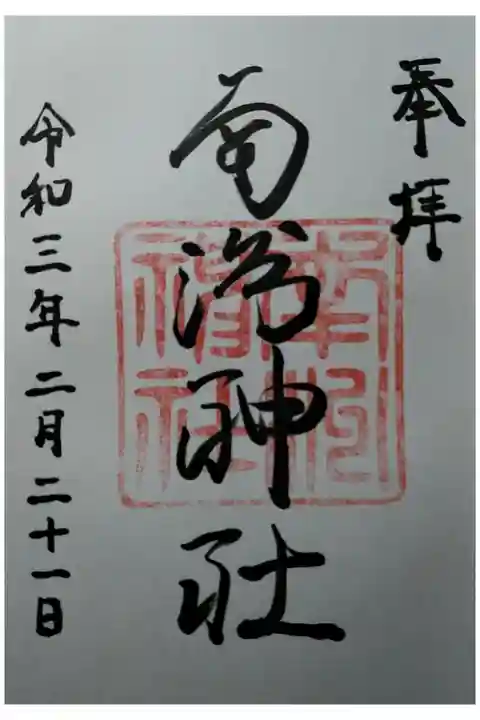 奉拝
南洲神社
令和三年二月二十一日